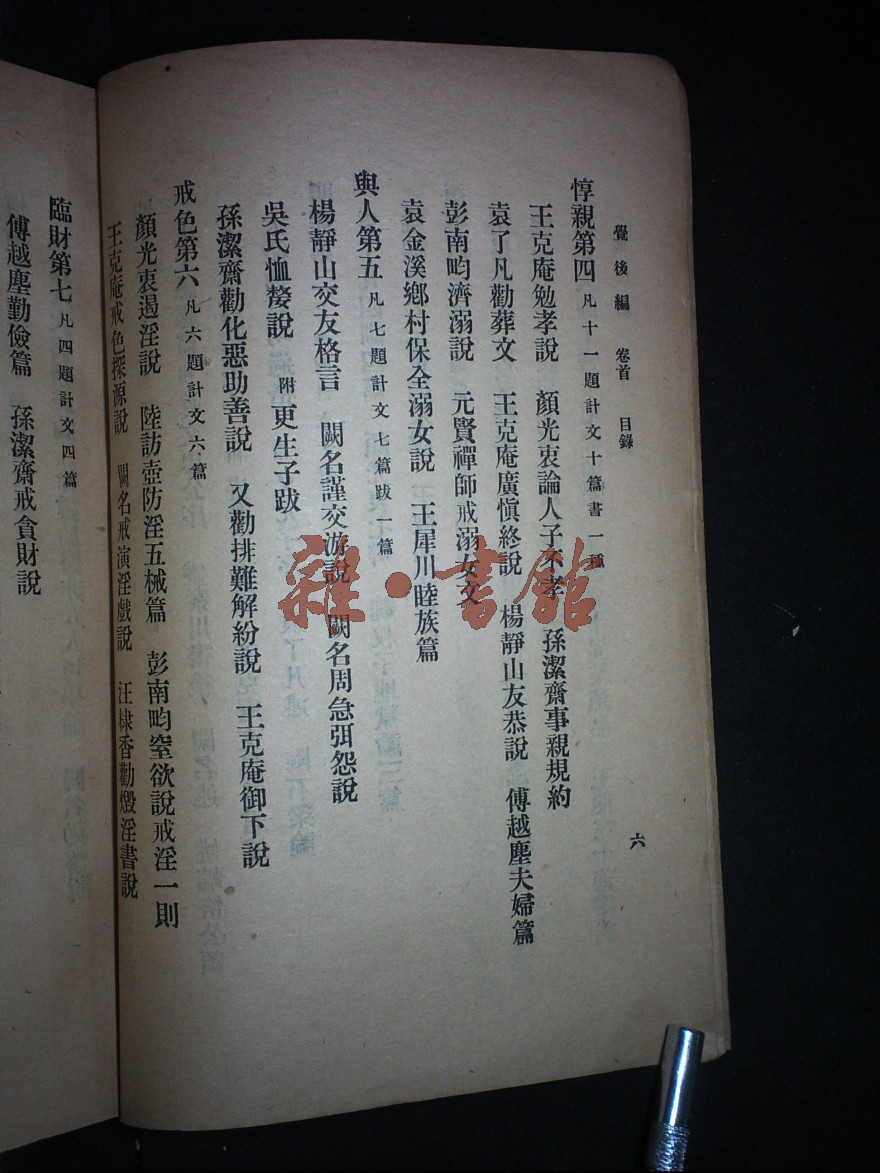 覺後編 卷首 目錄 六
惇親第四 凡十一題計文十篇書一種
王克庵勉孝說 顏光衷論人子不孝 孫潔齋事親規約
袁了凡勸葬文 王克庵廣慎終說 楊靜山友恭說 傅越塵夫婦篇
彭南畇濟溺說 元賢禪師戒溺女文
袁金溪鄉村保全溺女說 王犀川睦族篇
與人第五 凡七題計文七篇跋一篇
楊靜山交友格言 闕名謹交游說 闕名周急弭怨說
吳氏恤嫠說 附更生子跋
孫潔齋勸化惡助善說 又勸排難解紛說 王克庵御下說
戒色第六 凡六題計文六篇
顏光衷遏淫說 陸訪壺防淫五械篇 彭南畇窒欲說戒淫一則
王克庵戒色探源說 闕名戒演淫戲說 汪棣香勸燬淫書說
臨財第七 凡四題計文四篇
傅越塵勤儉篇 孫潔齋戒貪財說
雜·書館